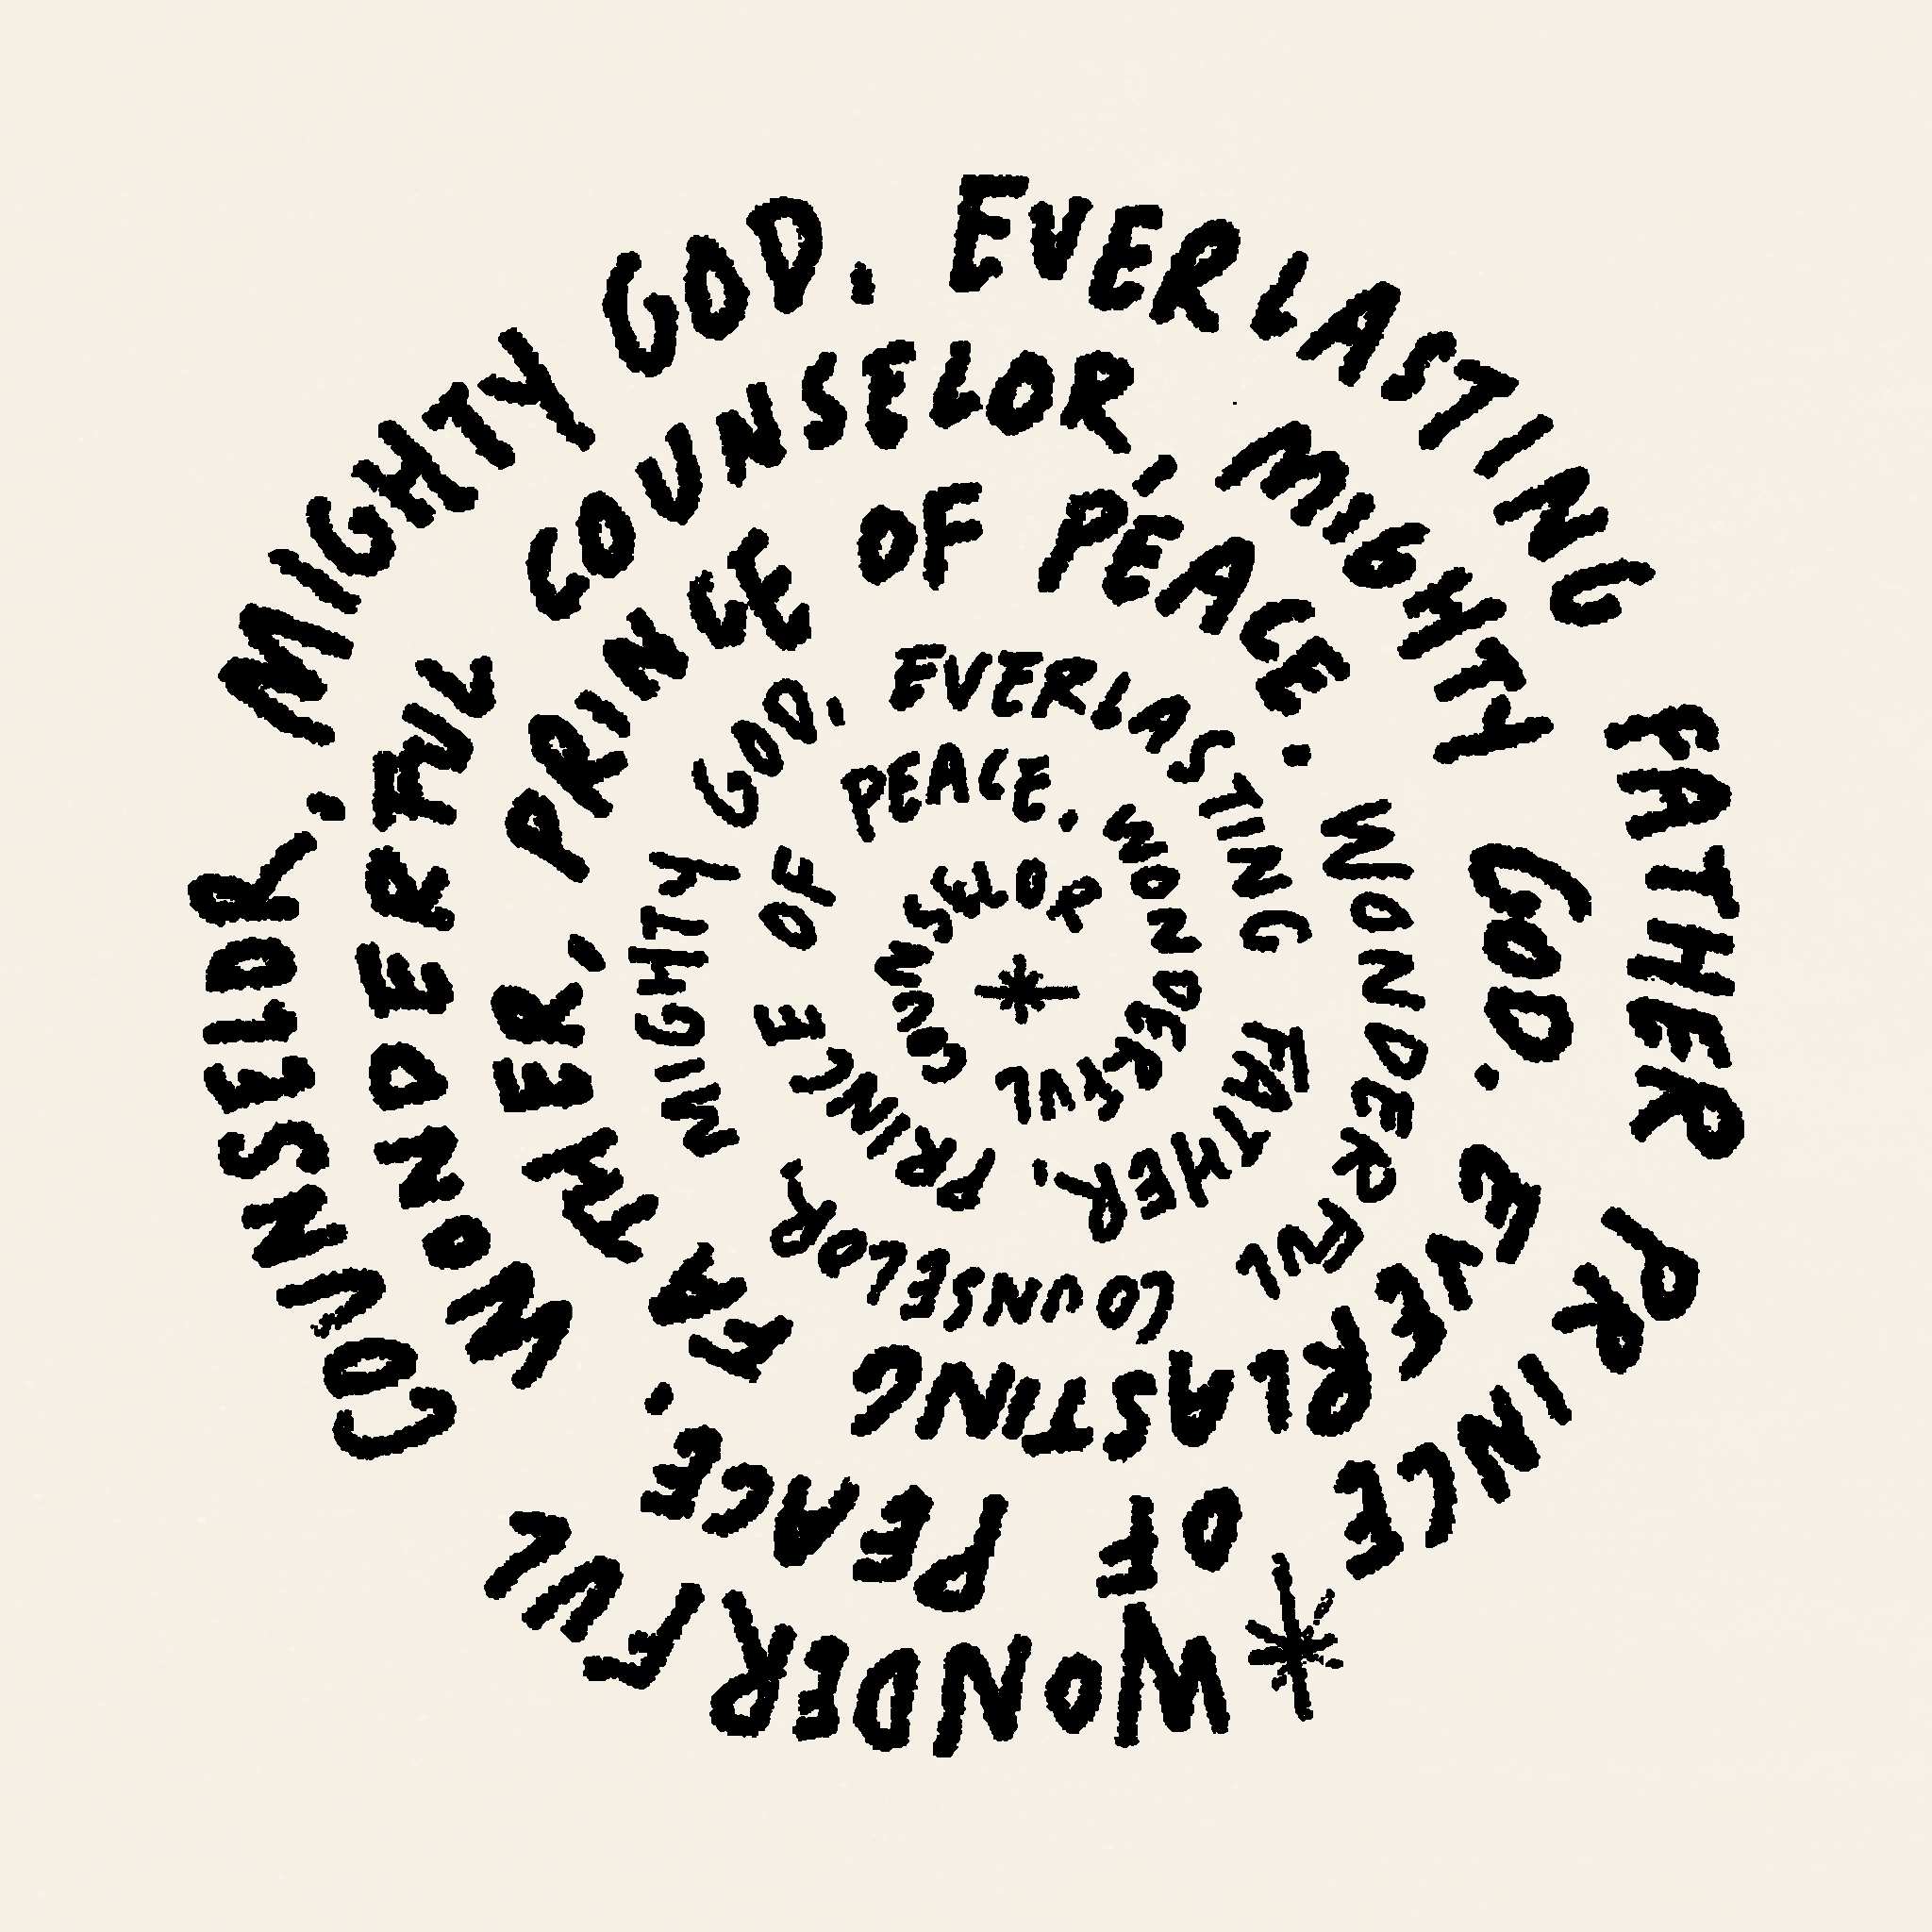 *WONDERFUL COUNSELOR, MIGHTY GOD, EVERLASTING FATHER PRINCE OF PEACE. WONDERFUL COUNSELOR, MIGHTY GOD. EVERLASTING FATHER, PRINCE OF PEACE. WONDERFUL COUNSELOR, MIGHTY GOD, EVERLASTING FATHER, PRINCE OF PEACE. WONDERFUL COUNSELOR *